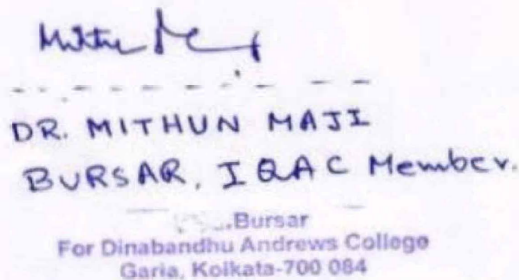 DR. MITHUN MAJI
BURSAR, IQAC Member.
Bursar
For Dinabandhu Andrews College
Garia, Kolkata-700 084